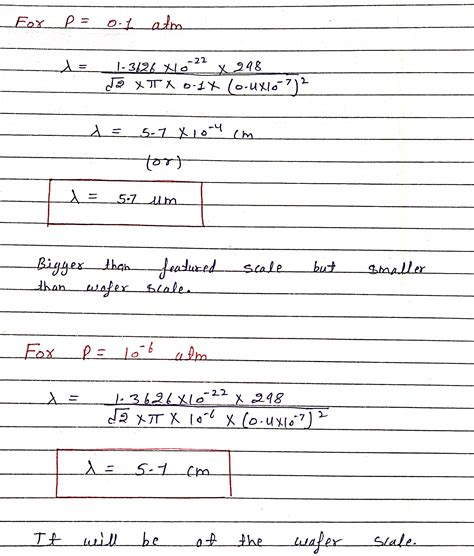 For P = 0.1 atm
λ = 1.3626 ×10⁻²² × 298
√2 × π × 0.1 × (0.4×10⁻⁷)²
λ = 5.7 ×10⁻⁴ cm
(or)
λ = 5.7 µm
Bigger than featured scale but smaller
than wafer scale.
For P = 10⁻⁶ atm
λ = 1.3626 ×10⁻²² × 298
√2 × π × 10⁻⁶ × (0.4×10⁻⁷)²
λ = 5.7 cm
It will be of the wafer scale.